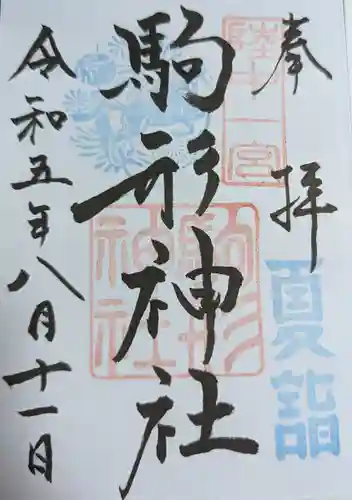 奉拝
陸中一宮
駒形神社
駒形神社
夏詣
令和五年八月十一日